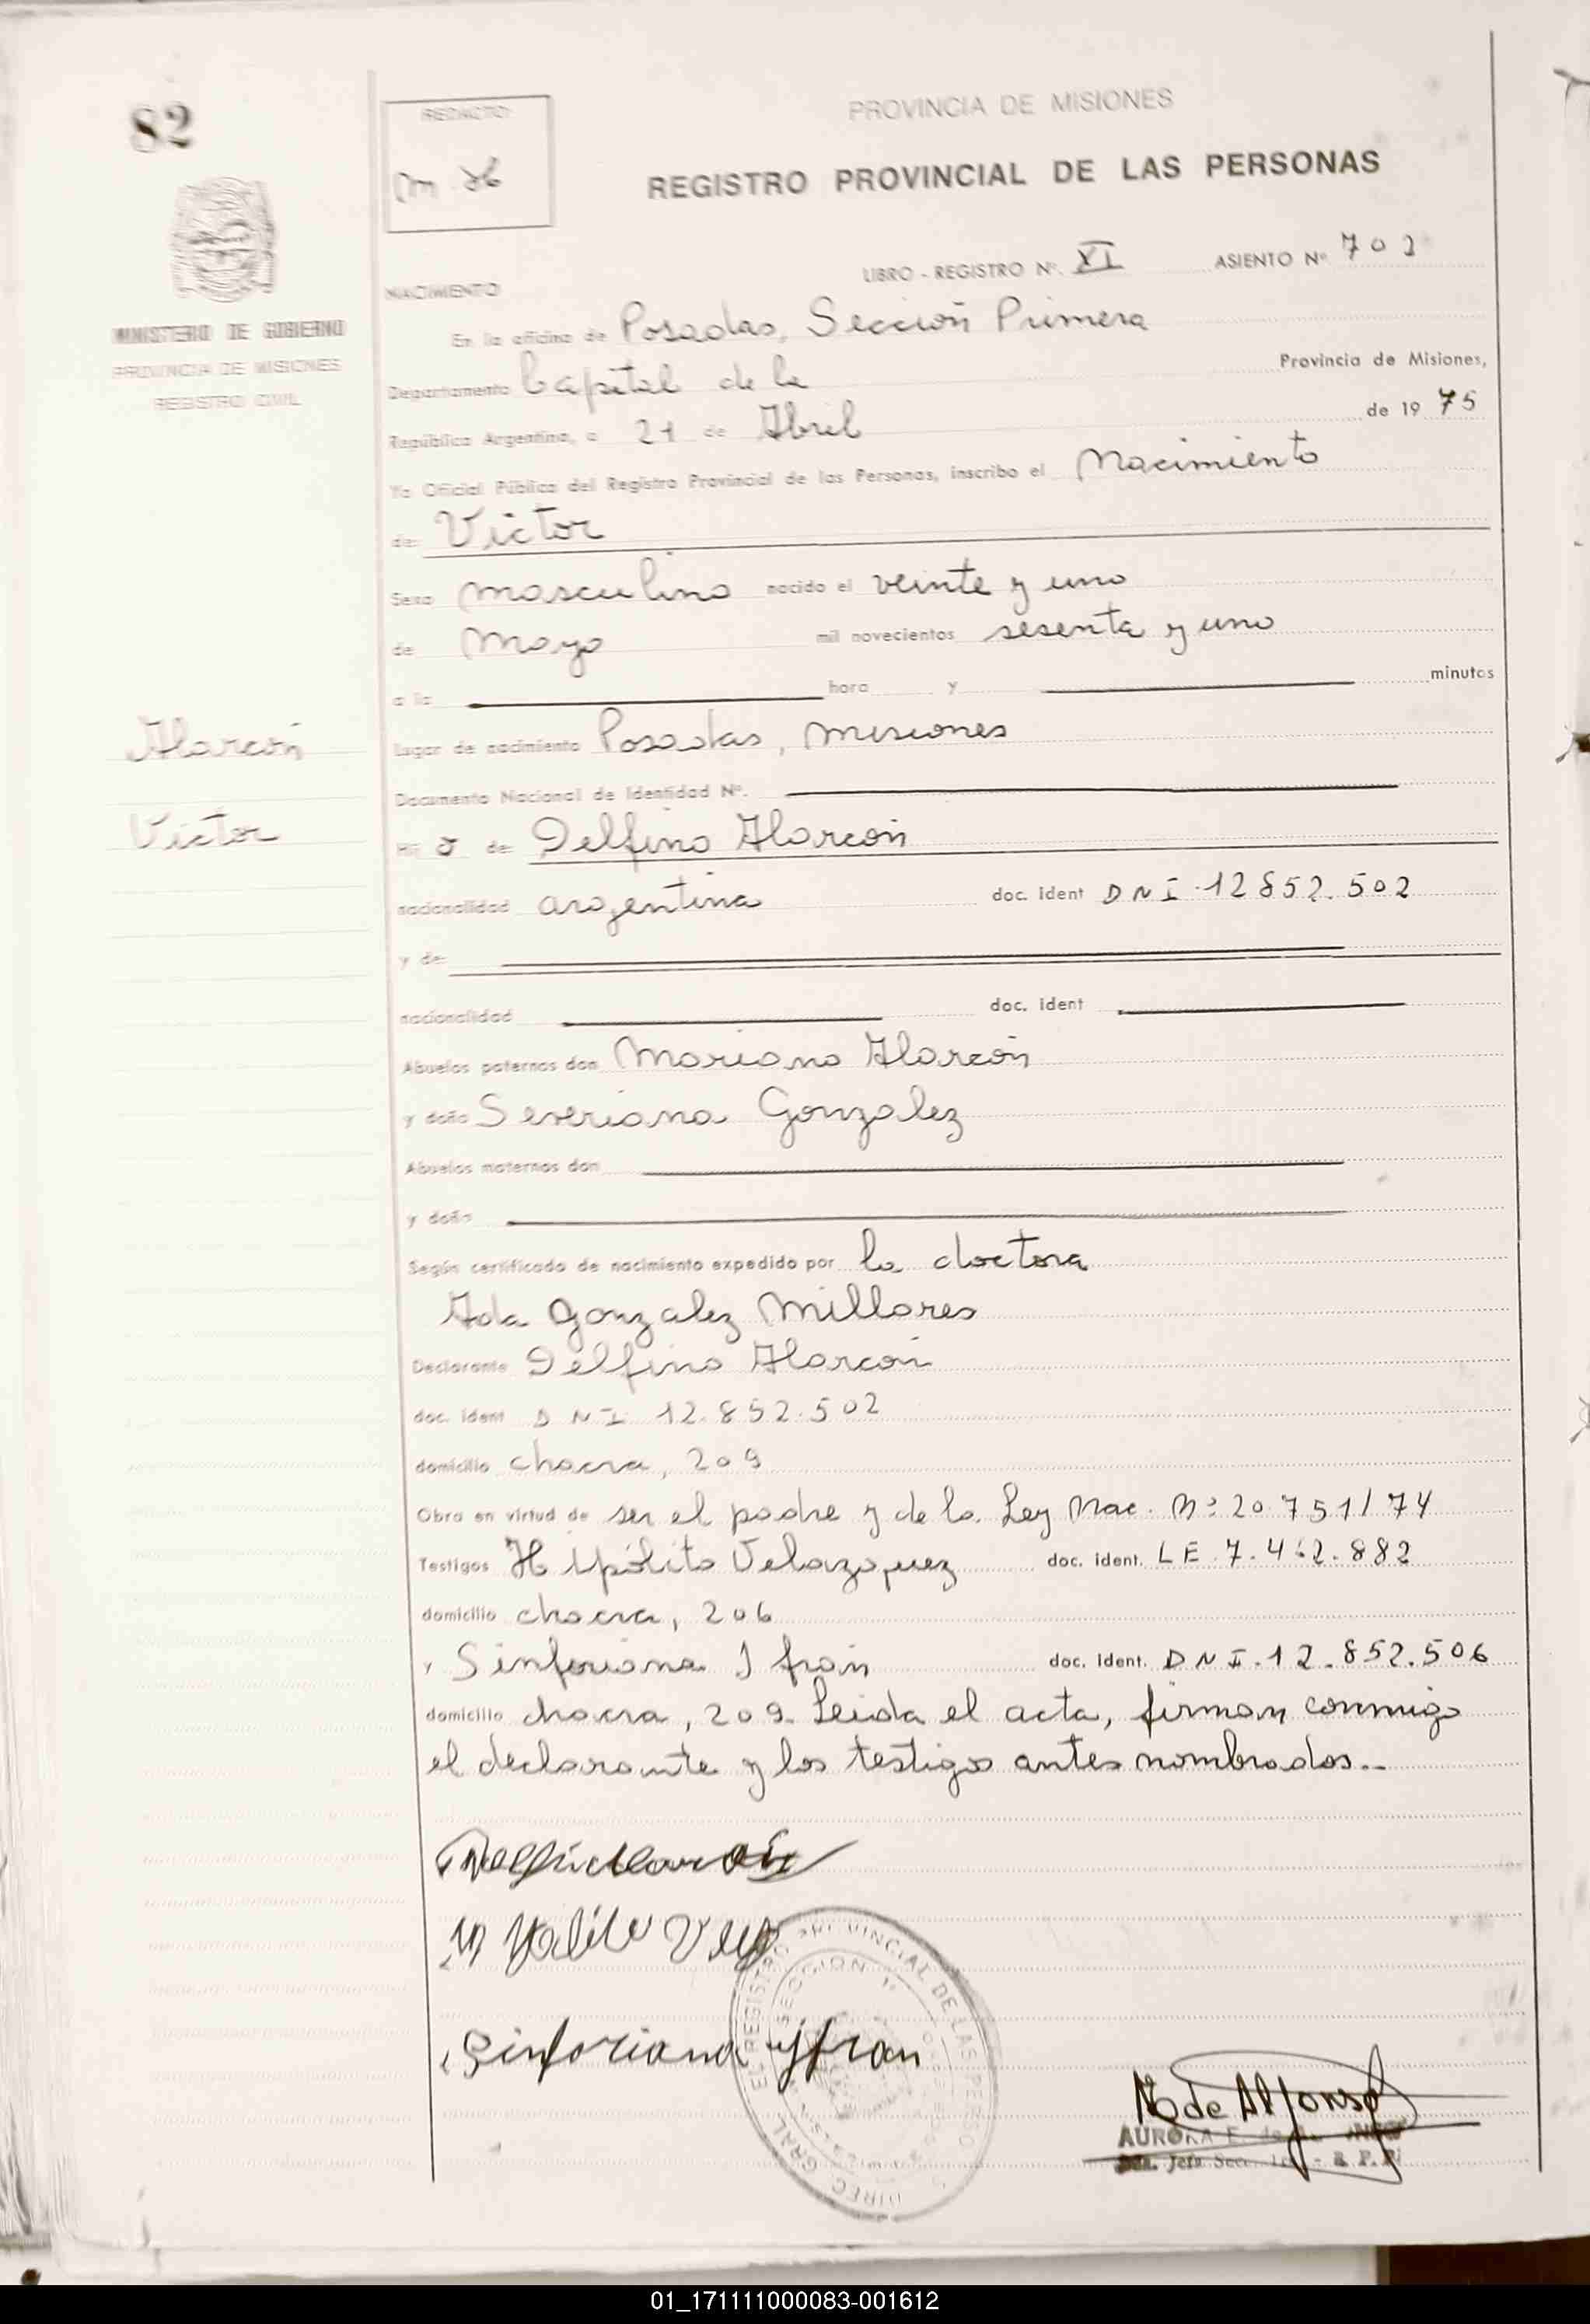 82
REDACTO:
PROVINCIA DE MISIONES
REGISTRO PROVINCIAL DE LAS PERSONAS
LIBRO - REGISTRO Nº. XI ASIENTO Nº 702
NACIMIENTO
MINISTERIO DE GOBIERNO
PROVINCIA DE MISIONES
REGISTRO CIVIL
En la oficina de Posadas, Sección Primera
Departamento Capital de la Provincia de Misiones,
República Argentina, a 21 de Abril de 1975
Yo Oficial Público del Registro Provincial de las Personas, inscribo el Nacimiento
de: Victor
Sexo masculino nacido el veinte y uno
de Mayo mil novecientos sesenta y uno
a la hora y minutos
Alarcón
Lugar de nacimiento Posadas, Misiones
Documento Nacional de Identidad Nº.
Victor
Hij o de: Delfino Alarcón
nacionalidad argentina doc. ident DNI 12852.502
y de:
nacionalidad doc. ident
Abuelos paternos don Mariano Alarcón
y doña Severiana Gonzalez
Abuelos maternos don
y doña
Según certificado de nacimiento expedido por la doctora
Ada Gonzalez Millares
Declarante Delfino Alarcón
doc. ident DNI 12.852.502
domicilio chacra, 209
Obra en virtud de ser el padre y de la Ley Nac. Nº 20.751/74
Testigos Hipólito Velazquez doc. ident. LE 7.462.882
domicilio chacra, 206
y Sinforiana Ifrán doc. ident. DNI.12.852.506
domicilio chacra, 209. Leida el acta, firman conmigo
el declarante y los testigos antes nombrados..
Sinforiana yfran
REGISTRO PROVINCIAL DE LAS PERSONAS
SECCION 1ª
DIREC. GRAL.
N de Alfonso
AURORA E. de
Jefa Secc.
01_171111000083-001612